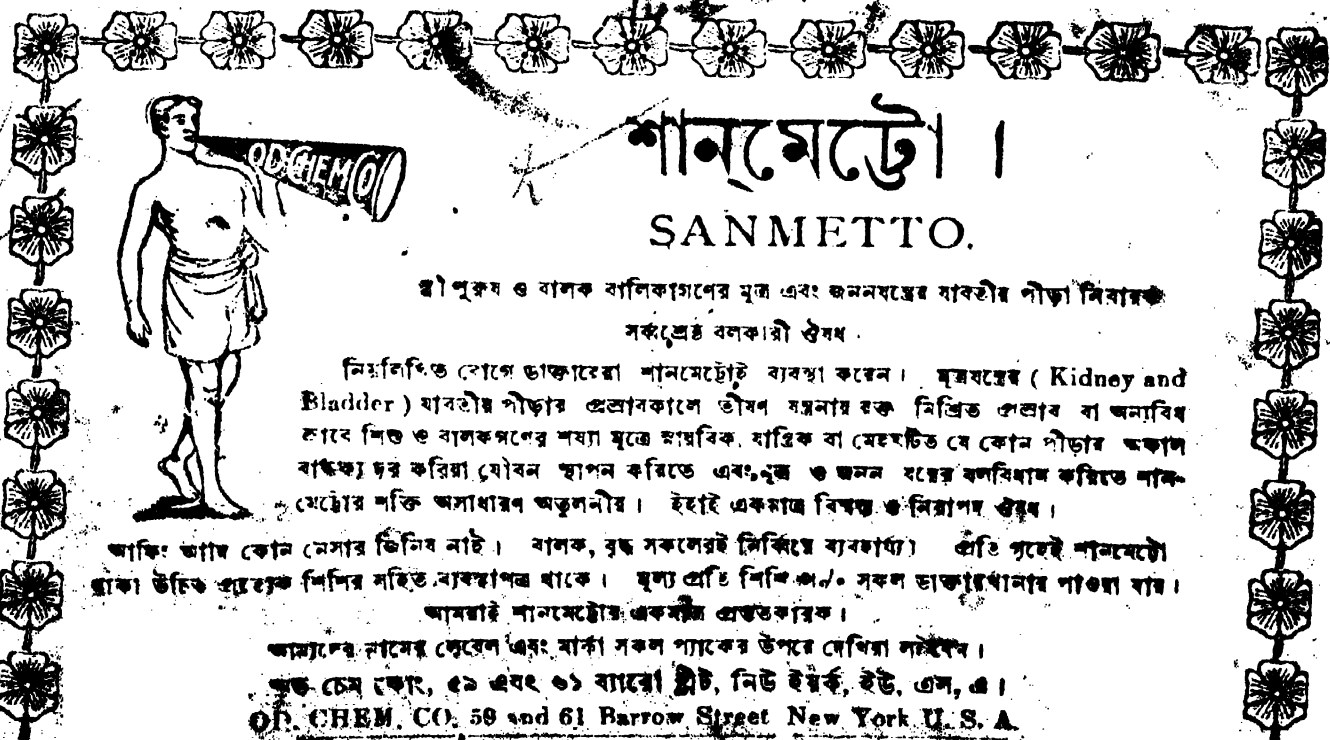 OD CHEM CO
শান্‌মেট্টো ।
SANMETTO.
স্ত্রী পুরুষ ও বালক বালিকাগণের মূত্র এবং জননযন্ত্রের যাবতীয় পীড়া নিবারক
সর্ব্বশ্রেষ্ঠ বলকারী ঔষধ .
নিম্নলিখিত রোগে ডাক্তারেরা শানমেট্টোই ব্যবস্থা করেন । মূত্রযন্ত্রের ( Kidney and
Bladder ) যাবতীয় পীড়ায় প্রস্রাবকালে ভীষণ যন্ত্রনায় রক্ত মিশ্রিত প্রস্রাব বা অন্যবিধ
স্রাবে শিশু ও বালকগণের শয্যা মূত্রে স্নায়বিক, যান্ত্রিক বা মেহঘটিত যে কোন পীড়ায় অকাল
বার্দ্ধক্য দূর করিয়া যৌবন স্থাপন করিতে এবং মূত্র ও জনন যন্ত্রের বলবিধান করিতে শান-
মেট্টোর শক্তি অসাধারণ অতুলনীয় । ইহাই একমাত্র বিশ্বস্ত ও নিরাপদ ঔষধ ।
আফিং আদি কোন নেসার জিনিষ নাই । বালক, বৃদ্ধ সকলেরই নির্ব্বিঘ্নে ব্যবহার্য্য। প্রতি গৃহেই শানমেট্টো
থাকা উচিত প্রত্যেক শিশির সহিত ব্যবস্থাপত্র থাকে । মূল্য প্রতি শিশি সকল ডাক্তারখানায় পাওয়া যায় ।
আমরাই শানমেট্টোর একমাত্র প্রস্তুতকারক ।
আমাদের নামের লেবেল এবং মার্কা সকল প্যাকের উপরে দেখিয়া লইবেন ।
অড চেম কোং, ৫৯ এবং ৬১ ব্যারো ষ্ট্রীট, নিউ ইয়র্ক, ইউ, এস, এ ।
OD. CHEM. CO. 59 and 61 Barrow Street New York U. S. A.